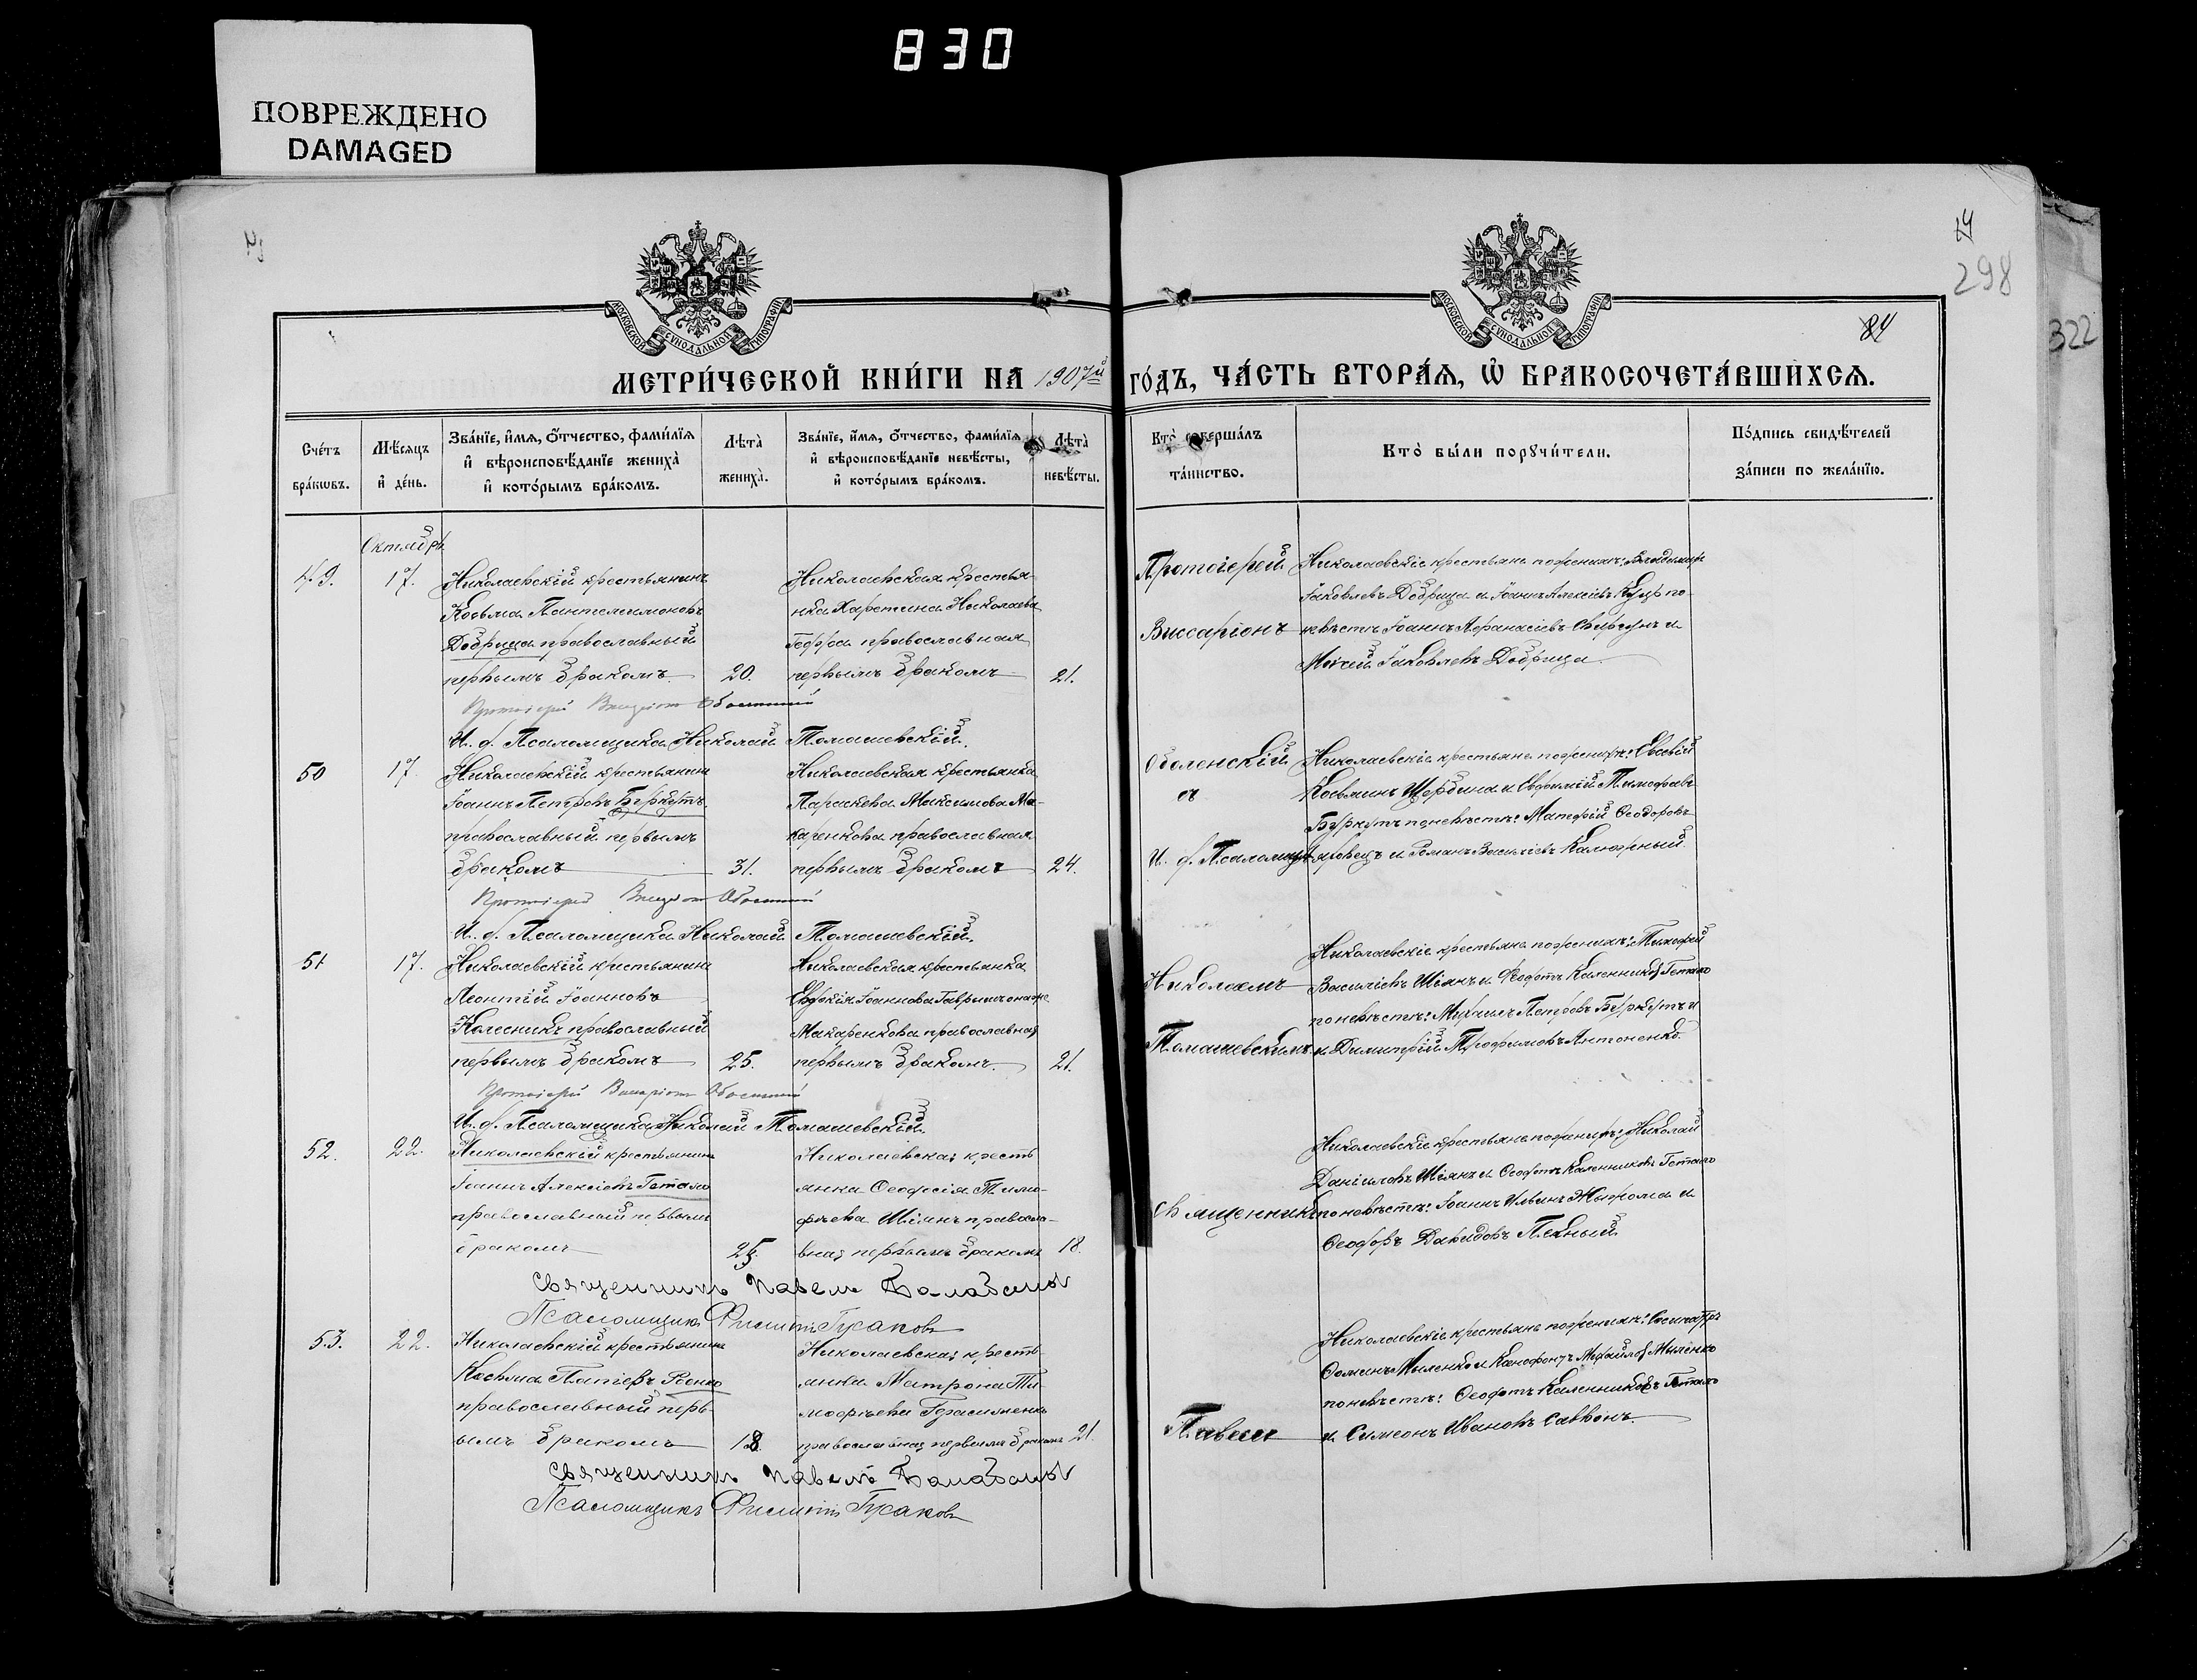 830
ПОВРЕЖДЕНО
DAMAGED
14
298
322
84
МОСКОВСКОЙ СѴНОДАЛЬНОЙ ТИПОГРАФІИ
МОСКОВСКОЙ СѴНОДАЛЬНОЙ ТИПОГРАФІИ
МЕТРИ́ЧЕСКОЙ КНИ́ГИ НА 1907й ГО́ДЪ, ЧА́СТЬ ВТОРА́Я, Ѡ БРАКОСОЧЕТА́ВШИХСЯ.
Сче́тъ бра́кωвъ.
Мѣ́сяцъ и де́нь.
Зва́нїе, и́мя, ѻ́тчество, фами́лїя и вѣроисповѣ́данїе жениха̀ и кото́рымъ бра́комъ.
Лѣта̀ жениха̀.
Зва́нїе, и́мя, ѻ́тчество, фами́лїя и вѣроисповѣ́данїе невѣ́сты, и кото́рымъ бра́комъ.
Лѣта̀ невѣ́сты.
Кто̀ соверша́лъ та́инство.
Кто̀ бы́ли порꙋчи́тели.
По́дпись свидѣ́телей за́писи по жела́нїю.
Октябрь
49.
17.
Николаевскій крестьянинъ
Косьма Пантелимоновъ
Добрица православный
первымъ бракомъ
20.
Николаевская крестья-
нка Харетина Николаева
православная
первымъ бракомъ
21.
Протоіерей
Виссаріонъ
Николаевскіе крестьяне по женихѣ: Владиміръ
Іаковлевъ Добрица и Іоаннъ Алексіевъ по
невѣстѣ Іоаннъ Аѳанасіевъ и
Моисей Іаковлевъ Добрица.
Протоіерей Виссаріонъ Оболенскій
И. д. Псаломщика Николай Томашевскій.
50
17.
Николаевскій крестьянинъ
Іоаннъ Петровъ Беркутъ
православный первымъ
бракомъ
31.
Николаевская крестьянка
Параскева Максимова Ма-
каренкова православная
первымъ бракомъ
24.
Оболенскій
съ
И. д. Псаломщ.
Николаевскіе крестьяне по женихѣ: Евсевій
Косьминъ Щербина и Евфимій Тимофеевъ
Беркутъ по невѣстѣ: Матфій Ѳеодоровъ
и Романъ Василіевъ Калюжный
Протоіерей Виссаріонъ Оболенскій
И. д. Псаломщика Николай Томашевскій.
51
17.
Николаевскій крестьянинъ
Леонтій Іоанновъ
Колесникъ православный
первымъ бракомъ
25.
Николаевская крестьянка
Евдокія Іоаннова она же
Макаренкова православная
первымъ бракомъ.
21.
Николаемъ
Томашевскимъ
Николаевскіе крестьяне по женихѣ: Тимофей
Василіевъ Шіянъ и Ѳеофотъ Каленниковъ Гетало
по невѣстѣ: Михаилъ Петровъ Беркутъ и
и Димитрій Трофимовъ Антоненко.
Протоіерей Виссаріонъ Оболенскій
И. д. Псаломщика Николай Томашевскій.
52.
22.
Николаевскій крестьянинъ
Іоаннъ Алексіевъ Гетало
православный первымъ
бракомъ
25.
Николаевская кресть
янка Ѳеодосія Тимо-
фѣева Шіянъ правосла-
вная первымъ бракомъ
18.
Священникъ
Николаевскіе крестьяне по женихѣ: Николай
Даніиловъ Шіянъ и Ѳеофотъ Каленниковъ Гетало
по невѣстѣ: Іоаннъ Ильинъ и
Ѳеодоръ Давидовъ
Священникъ Павелъ
Псаломщикъ Филиппъ Гусаковъ
53.
22.
Николаевскій крестьянинъ
Косьма
православный перв-
ымъ бракомъ
18.
Николаевская кресть
янка Матрона Ти-
мофѣева Герасименко
православная первымъ бракомъ
21.
Павелъ
Николаевскіе крестьяне по женихѣ:
Мыленко и Ксенофонтъ Михайловъ Мыленко
по невѣстѣ: Ѳеофотъ Каленниковъ Гетало
и Симеонъ Ивановъ Саввонъ.
Священникъ Павелъ
Псаломщикъ Филиппъ Гусаковъ